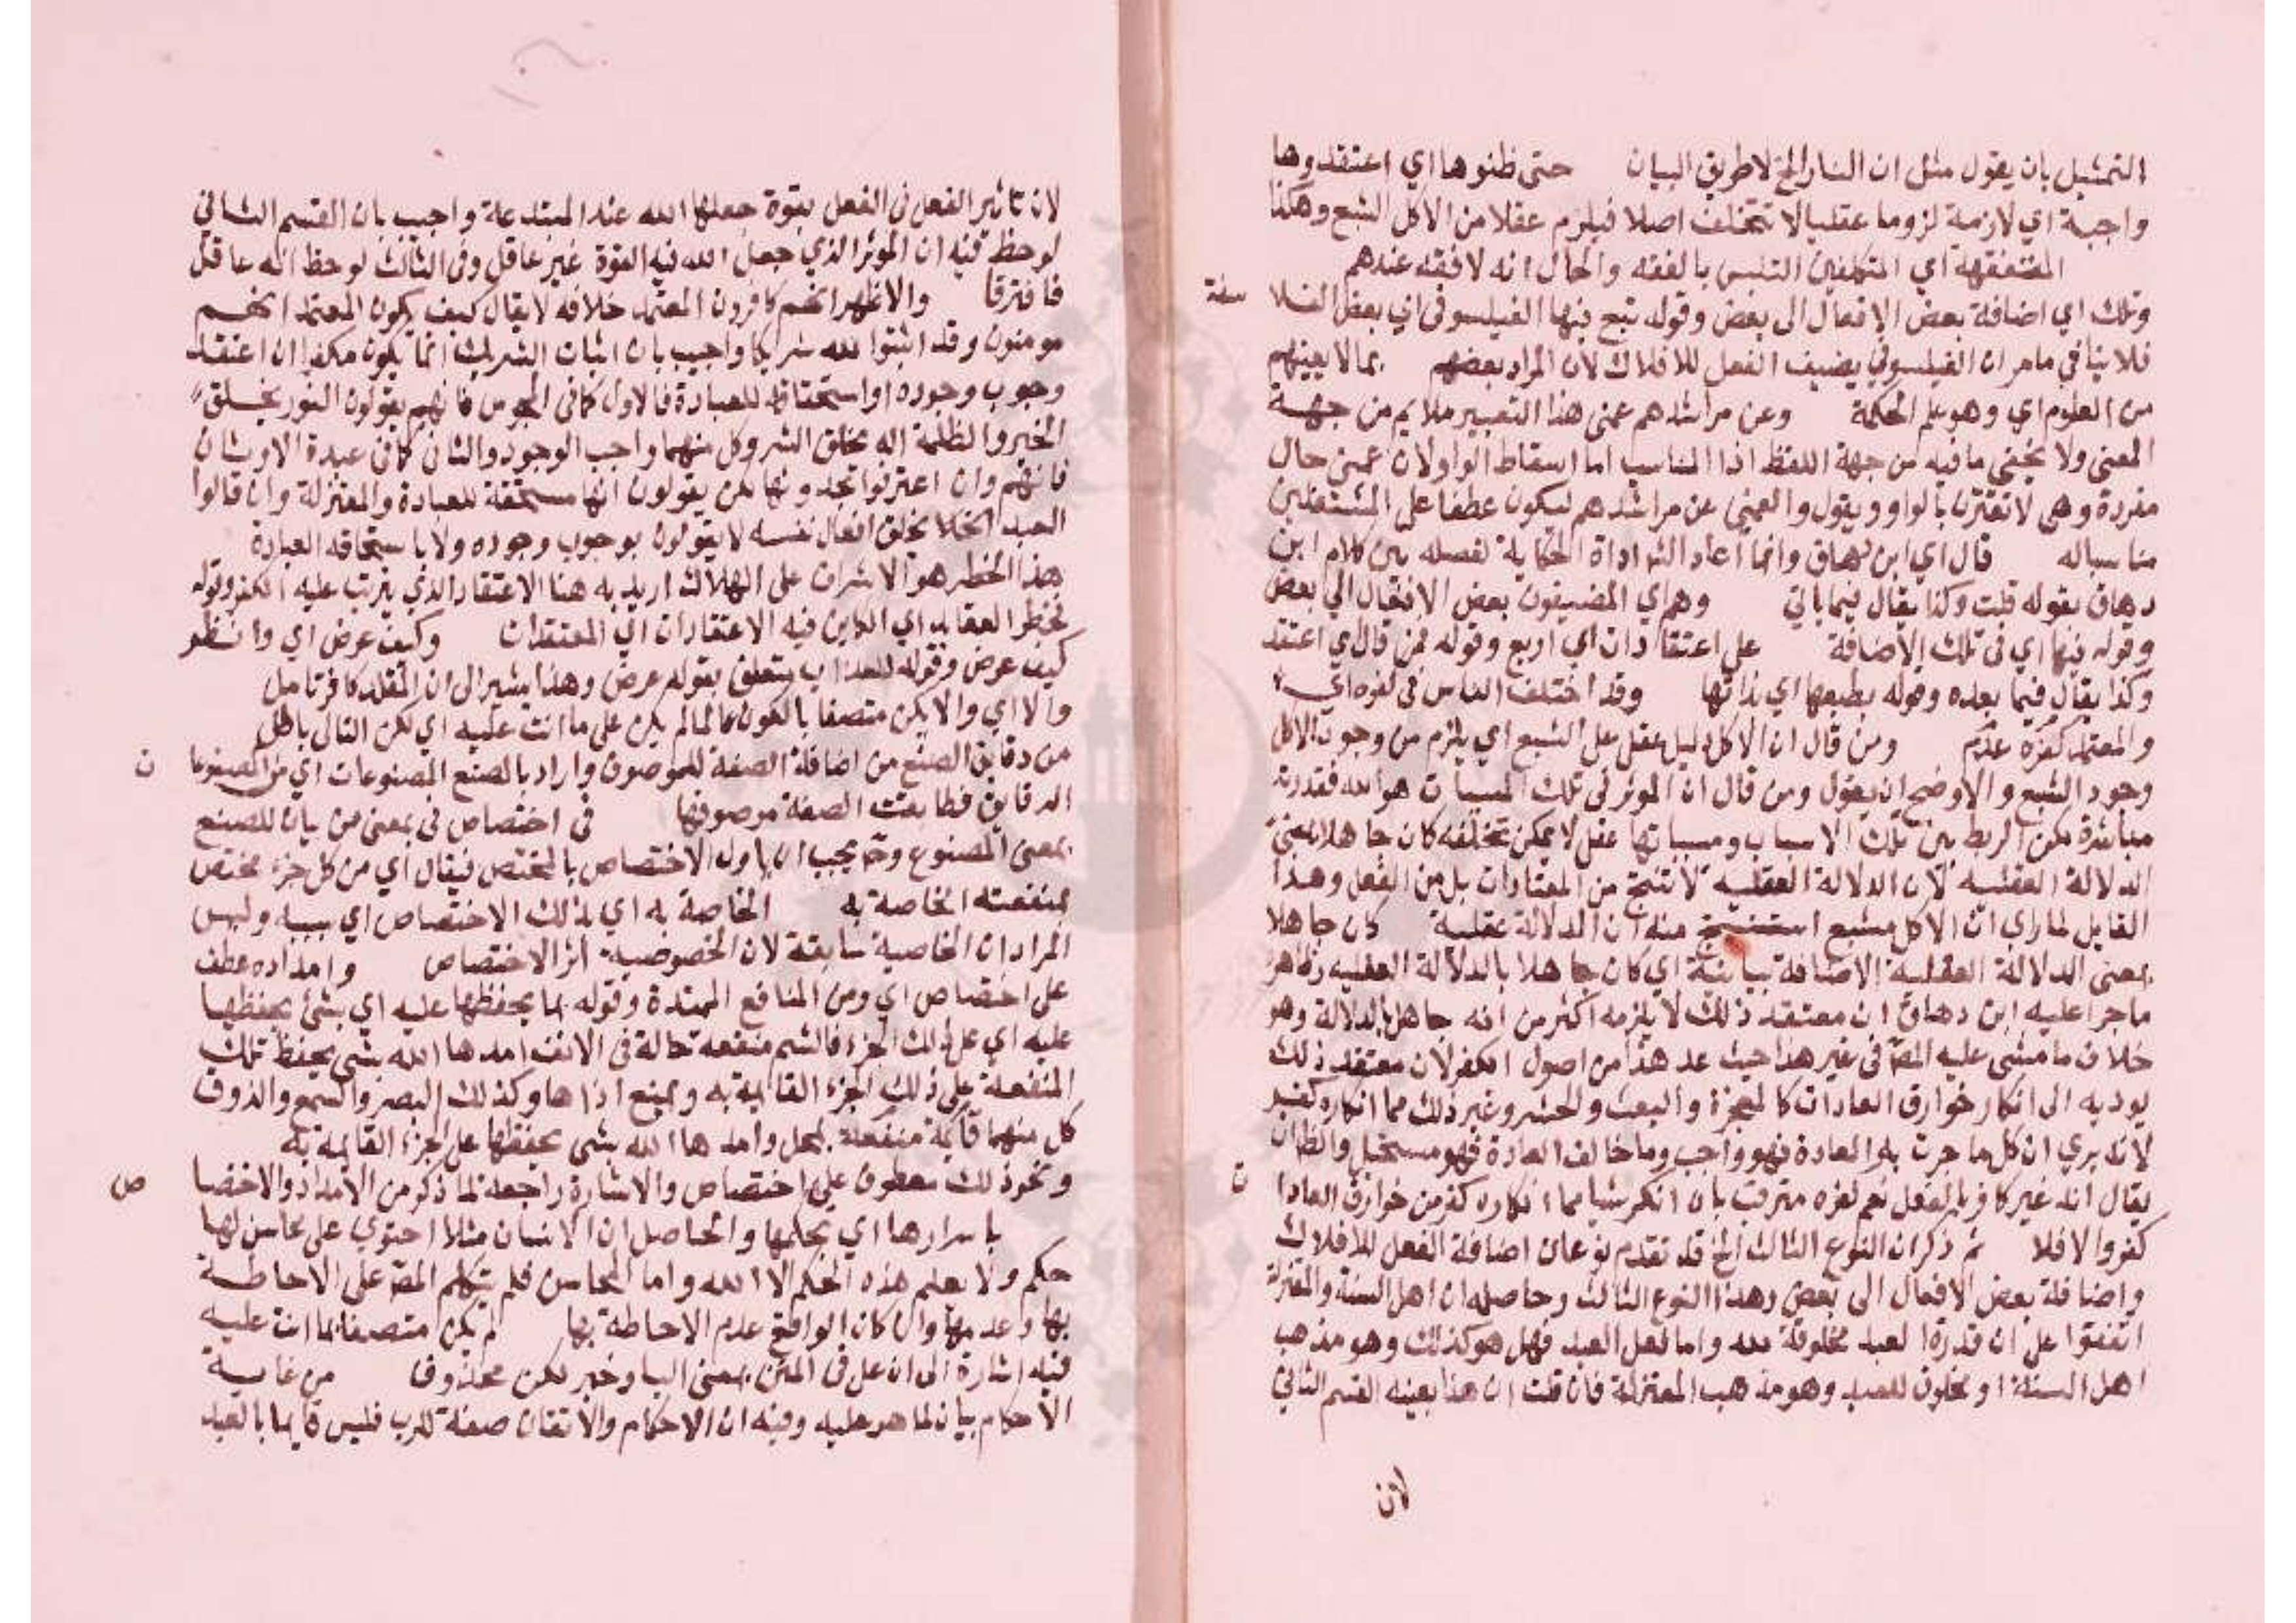 التمثيل بان يقول مثل ان النار الخ لا طريق البيان حتى ظنوها اي اعتقدوها
واجبة اي لازمة لزوما عقليا لا تتخلف اصلا فيلزم عقلا من الاكل الشبع وهكذا
المتفقهة اي المتكلفين التلبس بالفقه والحال انه لا فقه عندهم
وتلك اي اضافة بعض الافعال الى بعض وقوله تبع فيها الفيلسوفي اي بعض الفلا سفة
فلا ينافي ما مر ان الفيلسوفي يضيف الفعل للافلاك لان المراد بعضهم بما لا يعينهم
من العلوم اي وهو علم الحكمة وعن مراشدهم عمى هذا التعبير ملايم من جهة
المعنى ولا يخفى ما فيه من جهة اللفظ اذ المناسب اما اسقاط الواو لان عمين حال
مفردة وهي لا تقترن بالواو ويقول والعمين عن مراشدهم ليكون عطفا على المشتغلين
مناسباله قال اي ابن دهاق وانما اعاد الش اداة الحكاية لفصله بين كلام ابن
دهاق بقوله قلت وكذا يقال فيما ياتي وهم اي المضيفون بعض الافعال الي بعض
وقوله فيها اي في تلك الاضافة على اعتقادات اي اربع وقوله فمن قال اي اعتقد
وكذا يقال فيما بعده وقوله بطبعها اي بذاتها وقد اختلف الناس في كفره اي
والمعتمد كفره عدم ومن قال ان الاكل دليل عقل على الشبع اي يلزم من وجود الاكل
وجود الشبع والاوضح ان يقول ومن قال ان الموثر في تلك المسببات هو الله فقدرته
مباشرة لكن الربط بين تلك الاسباب ومسبباتها عقل لا يمكن تخلفه كان جاهلا بمعنى
الدلالة العقلية لان الدلالة العقلية لا تنتج من المعتادات بل من الفعل وهذا
القايل لما راى ان الاكل مشبع استنتج منه ان الدلالة عقلية كان جاهلا
بمعنى الدلالة العقلية الاضافة بيانية اي كان جاهلا بالدلالة العقلية وظاهر
ما جرا عليه ابن دهاق ان معتقد ذلك لا يلزمه اكثر من انه جاهل بالدلالة وهو
خلاف ما مشى عليه المصّ في غير هذا حيث عد هذا من اصول الكفر لان معتقد ذلك
يوديه الى انكار خوارق العادات كالمعجزة والبعث والحشر وغير ذلك مما انكاره كفر
لانه يري ان كل ما جرت به العادة فهو واجب وما خالف العادة فهو مستحيل والظ ان
يقال انه غير كافر بالفعل نعم كفره مترقب بان انكر شيا مما انكاره كفر من خوارق العادا ت
كفر والا فلا ثم ذكر ان النوع الثالث الخ قد تقدم نوعان اضافة الفعل للافلاك
واضافة بعض الافعال الى بعض وهذا النوع الثالث وحاصله ان اهل السنة والمعتزلة
اتفقوا على ان قدرة العبد مخلوقة لله واما فعل العبد فهل هو كذلك وهو مذهب
اهل السنة او مخلوق للعبد وهو مذهب المعتزلة فان قلت ان هذا بعينه القسم الثاني
لان
لان تاثير الفعل في الفعل بقوة جعلها الله عند المبتدعة واجيب بان القسم الثاني
لوحظ فيه ان الموثر الذي جعل الله فيه القوة غير عاقل وفي الثالث لوحظ انه عاقل
فافترقا والاظهر انهم كافرون المعتمد خلافه لا يقال كيف يكون المعتمد انهم
مومنون وقد اثبتوا لله شريكا واجيب بان اثبات الشريك انما يكون مكفرا ان اعتقد
وجوب وجوده او استحقاقه للعبادة فالاول كما في المجوس فانهم يقولون النور يخلق
الخير والظلمة اله يخلق الشر وكل منهما واجب الوجود والثان كما في عبدة الاوثان
فانهم وان اعترفوا بحدوثها لكن يقولون انها مستحقة للعبادة والمعتزلة وان قالوا
العبد يخلق افعال نفسه لا يقولون بوجوب وجوده ولا باستحقاقه العبادة
هذا الخطر هو الاشراف على الهلاك اريد به هنا الاعتقاد الذي يترتب عليه الكفر وقوله
بخطر العقايد اي الكاين فيه الاعتقادات اي المعتقدات وكيف عرض اي وانظر
كيف عرض وقوله للعذاب يتعلق بقوله عرض وهذا يشير الى ان المقلد كافر تامل
والا اي والا يكن متصفا بالكون عالما لم يكن على ما انت عليه اي لكن التالي باطل
من دقايق الصنع من اضافة الصفة للموصوف واراد بالصنع المصنوعات اي من المصنوعا ت
الدقايق فطابقت الصفة موصوفها في اختصاص في بمعنى من بيان للصنع
بمعنى المصنوع وح يجب ان ياول الاختصاص بالمختص فيقال اي من كل جزء مختص
بمنفعته الخاصة به الخاصة به اي بذلك الاختصاص اي بسببه وليس
المراد ان الخاصية سابقة لان الخصوصية اثر الاختصاص وامداده عطف
على اختصاص اي ومن المنافع الممتدة وقوله بما يحفظها عليه اي بشئ يحفظها
عليه اي على ذلك الجزء فالشم منفعة حالة في الانف امدها الله بشي يحفظ تلك
المنفعة على ذلك الجزء القايمة به ويمنع اذاها وكذلك البصر والسمع والذوق
كل منهما قايمة منفعة بمحل وامدها الله بشي يحفظها على الجزء القايمة به
ونحو ذلك معطوف علي اختصاص والاشارة راجعة لما ذكر من الامداد والاختصا ص
باسرارها اي بحكمها والحاصل ان الانسان مثلا احتوي على محاسن لها
حكم ولا يعلم هذه الحكم الا الله واما المحاسن فلم يتكلم المصّ على الاحاطة
بها وعدمها وان كان الواقع عدم الاحاطة بها لم يكن متصفا بما انت عليه
فيه اشارة الى ان على في المتن بمعنى البا وخبر لكن محذوفا من غاية
الاحكام بيان لما هو عليه وفيه ان الاحكام والاتقان صفة للرب فليس قايما بالعبد